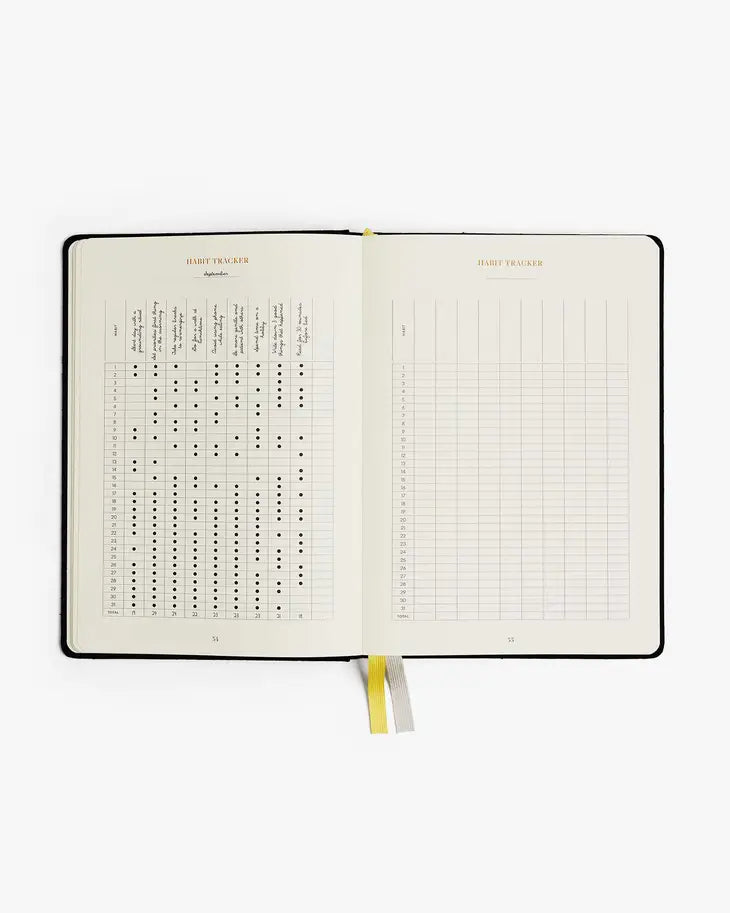 HABIT TRACKER
September
HABIT
Start day with a
Set priorities first thing
in the morning
Take regular breaks
Go for a walk at
lunchtime
Avoid using phone
while eating
Be more gentle and
patient with others
Spend time on a
hobby
Write down 3 good
things that happened
Read for 30 minutes
before bed
1
2
3
4
5
6
7
8
9
10
11
12
13
14
15
16
17
18
19
20
21
22
23
24
25
26
27
28
29
30
31
TOTAL
34
HABIT TRACKER
HABIT
1
2
3
4
5
6
7
8
9
10
11
12
13
14
15
16
17
18
19
20
21
22
23
24
25
26
27
28
29
30
31
TOTAL
35